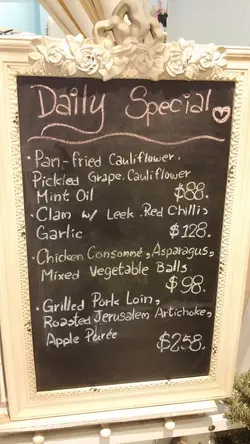 Daily Special
• Pan-fried Cauliflower.
Pickled Grape. Cauliflower
Mint Oil $88.
• Clam w/ Leek. Red Chilli,
Garlic $128.
• Chicken Consonmé, Asparagus,
Mixed Vegetable Balls
$98.
• Grilled Pork Loin,
Roasted Jerusalem Artichoke,
Apple Purée
$258.